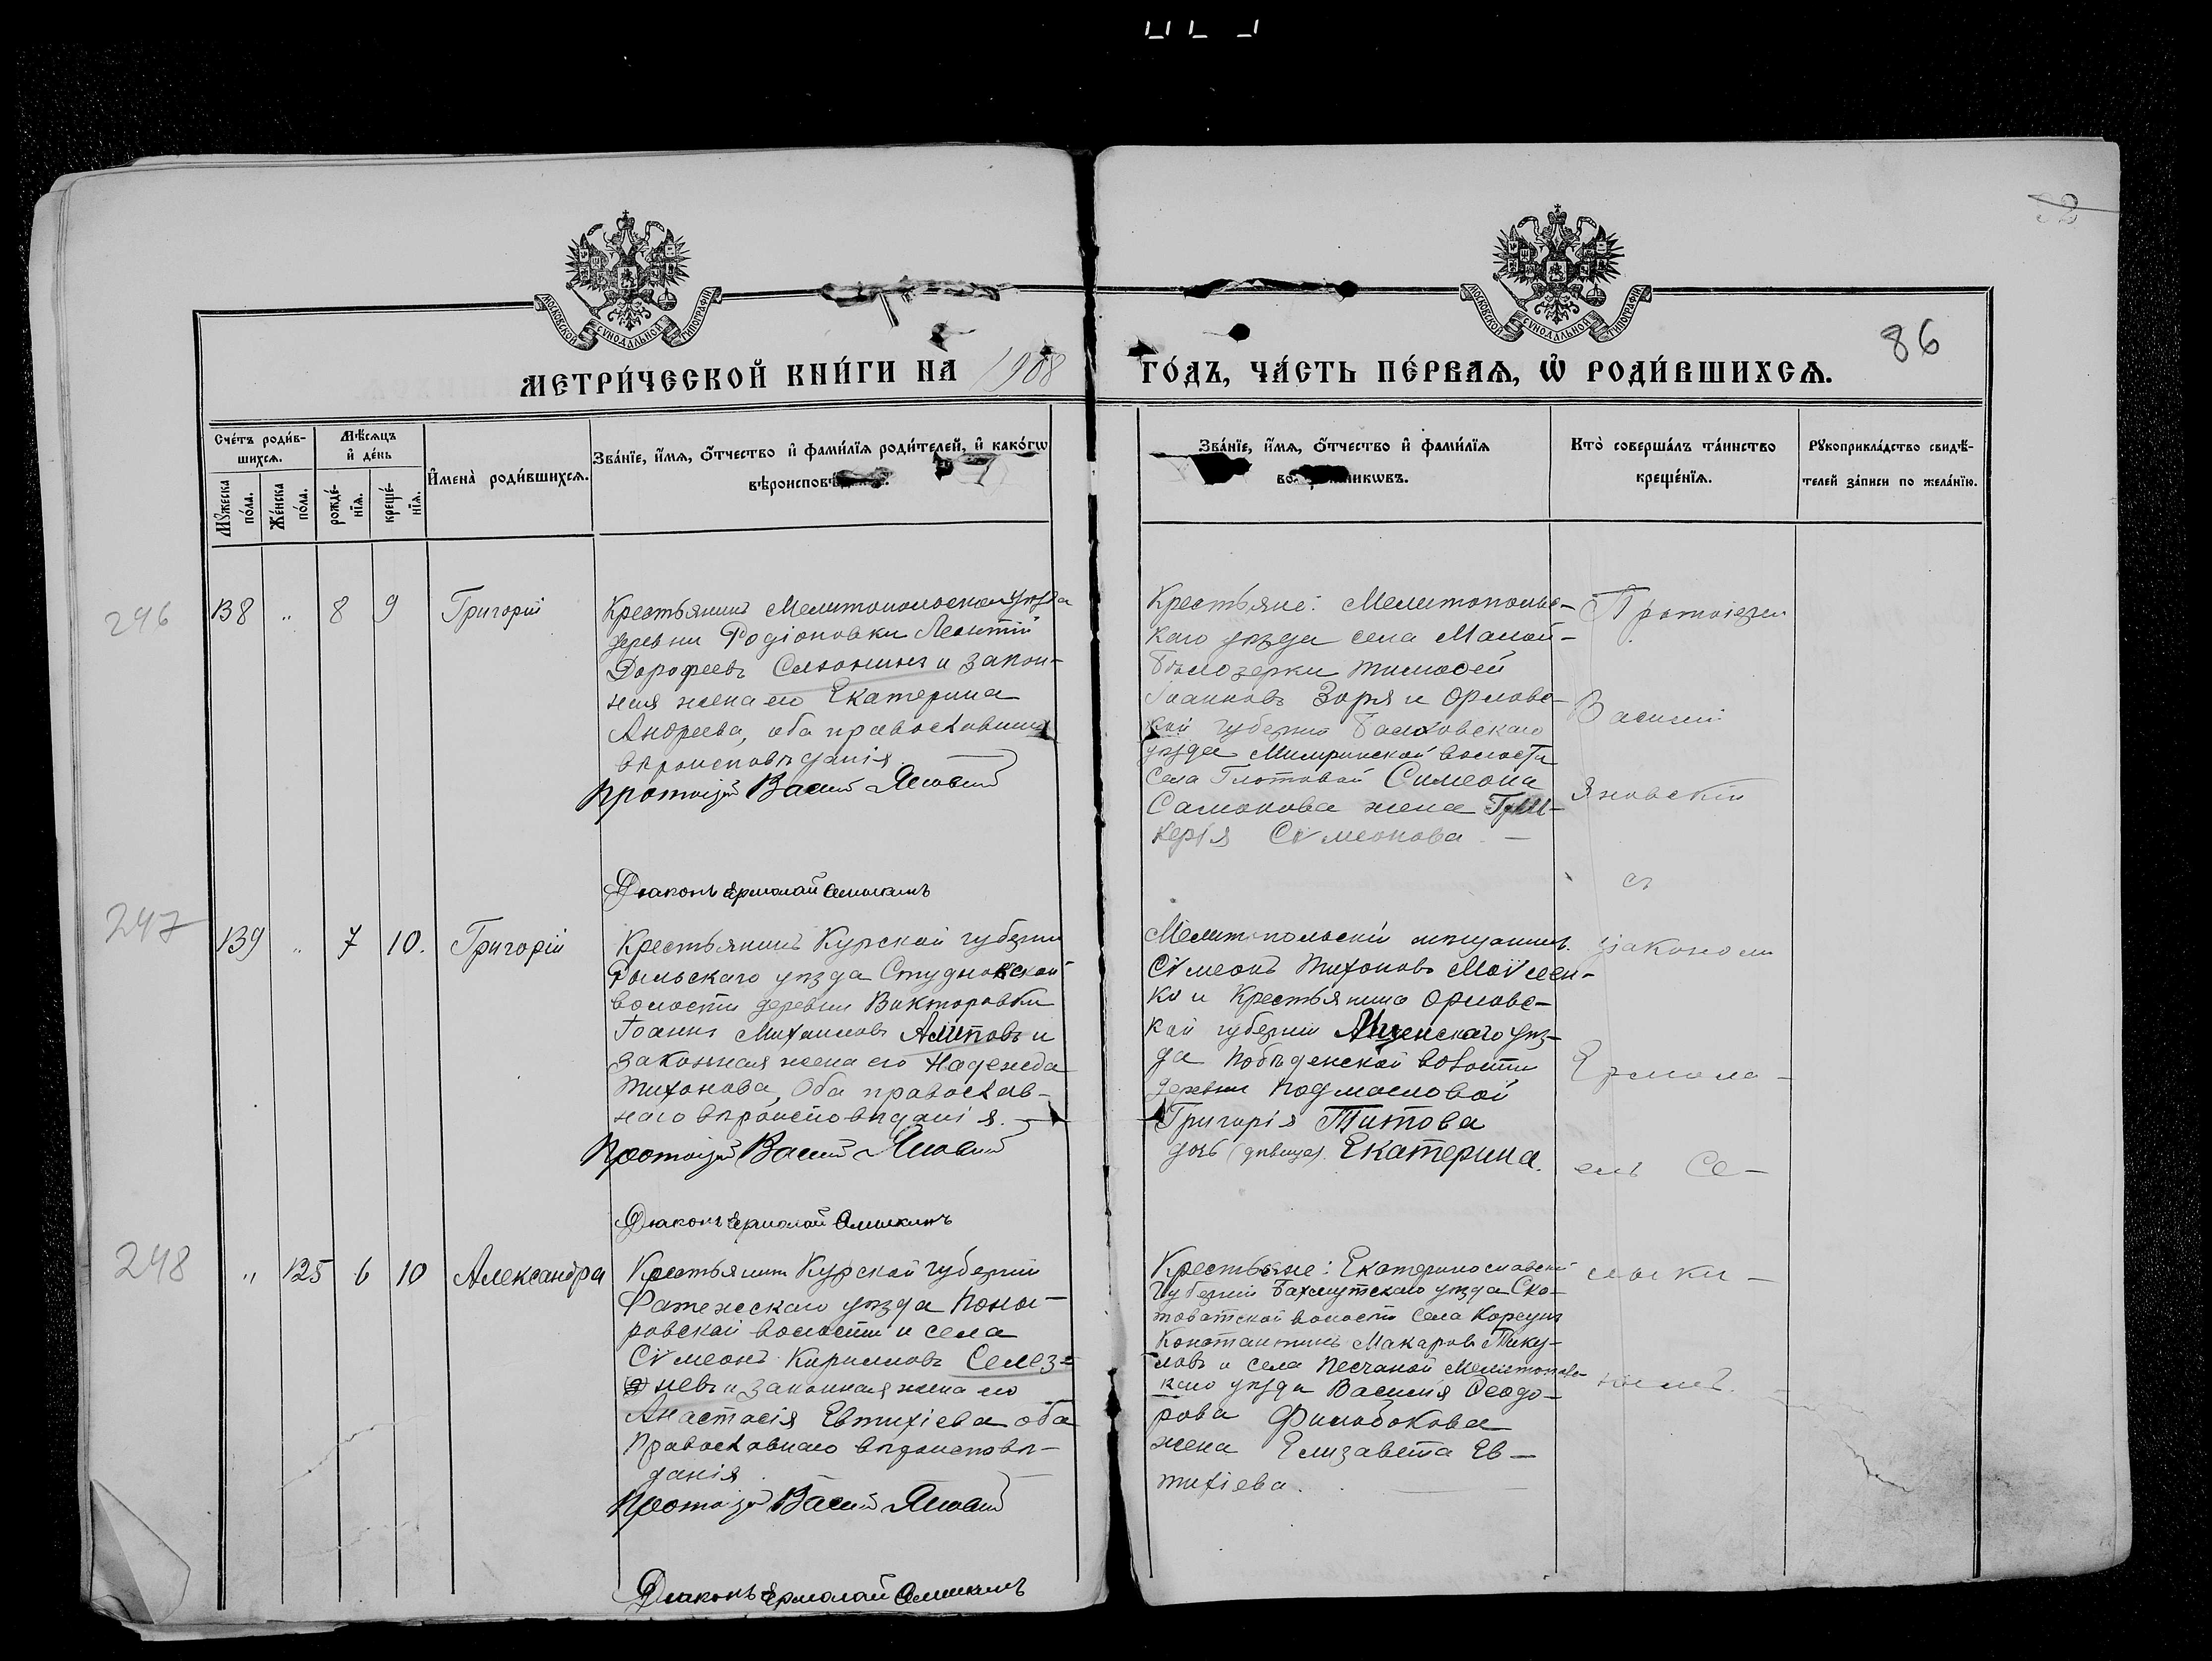 82
86
МОСКОВСКОЙ СѴНОДАЛЬНОЙ ТИПОГРАФІИ
МОСКОВСКОЙ СѴНОДАЛЬНОЙ ТИПОГРАФІИ
МЕТРИ́ЧЕСКОЙ КНИ́ГИ НА 1908
ГО́ДЪ, ЧА́СТЬ ПЕ́РВАѦ, Ѡ҆ РОДИ́ВШИХСѦ.
Сче́тъ роди́в-
шихсѧ.
Мѣ́сѧцъ
и҆ де́нь
Мꙋ́жеска
по́ла.
Же́нска
по́ла.
рожде́-
нїѧ.
креще́-
нїѧ.
И҆мена̀ роди́вшихсѧ.
Зва́нїе, и҆́мѧ, ѻ҆́тчество и҆ фами́лїѧ роди́телей, и҆ како́гѡ
вѣроисповѣ
Зва́нїе, и҆́мѧ, ѻ҆́тчество и҆ фами́лїѧ
Кто̀ соверша́лъ та́инство
креще́нїѧ.
Рꙋкоприкла́дство свидѣ́-
телей за́писи по жела́нїю.
246
138 " 8 9 Григорій
Крестьянинъ Мелитопольскаго уѣзда
деревни Родіоновки Леонтій
Дорофеевъ и закон-
ная жена его Екатерина
Андреева, оба православнаго
вѣроисповѣданія.
Протоіерей Василій Яновскій
Діаконъ Ермолай
Крестьяне: Мелитопольс-
каго уѣзда села Малой-
Бѣлозерки Тимоѳей
Іоанновъ Зоря и Орловс-
кой губерніи Болховскаго
уѣзда волости
села Глотовой Симеона
Самонова жена Гли-
керія Сѵмеонова. —
Протоіерей
Василій
Яновскій
съ
діакономъ
Ермола-
емъ Се-
247
139 " 7 10. Григорій
Крестьянинъ Курской губерніи
Рыльскаго уѣзда Студенокской
волости деревни Викторовки
Іоаннъ Михаиловъ Алиповъ и
законная жена его Надежда
Тихонова, Оба православ-
наго вѣроисповѣданія. —
Протоіерей Василій Яновскій
Діаконъ Ермолай
Мелитопольскій мѣщанинъ
Сѵмеонъ Тихоновъ
ко и Крестьянина Орловс-
кой губерніи Мценскаго уѣз-
да волости
деревни Подмасловой
Григорія Титова
дочь (дѣвица) Екатерина.
248
" 125 6 10 Александра
Крестьянинъ Курской губерніи
Фатежскаго уѣзда Поны-
ровской волости и села
Сѵмеонъ Кирилловъ Селез-
невъ и законная жена его
Анастасія Евтихіева оба
Православнаго вѣроисповѣ-
данія.
Протоіерей Василій Яновскій
Діаконъ Ермолай
Крестьяне: Екатеринославской
Губерніи Бахмутскаго уѣзда Ско-
товатской волости села Корсунь
Константинъ Макаровъ Пику-
ловъ и села Песчаной Мелитопольс-
каго уѣзда Василія Ѳеодо-
рова Филобокова
жена Елизавета Ев-
тихіева.